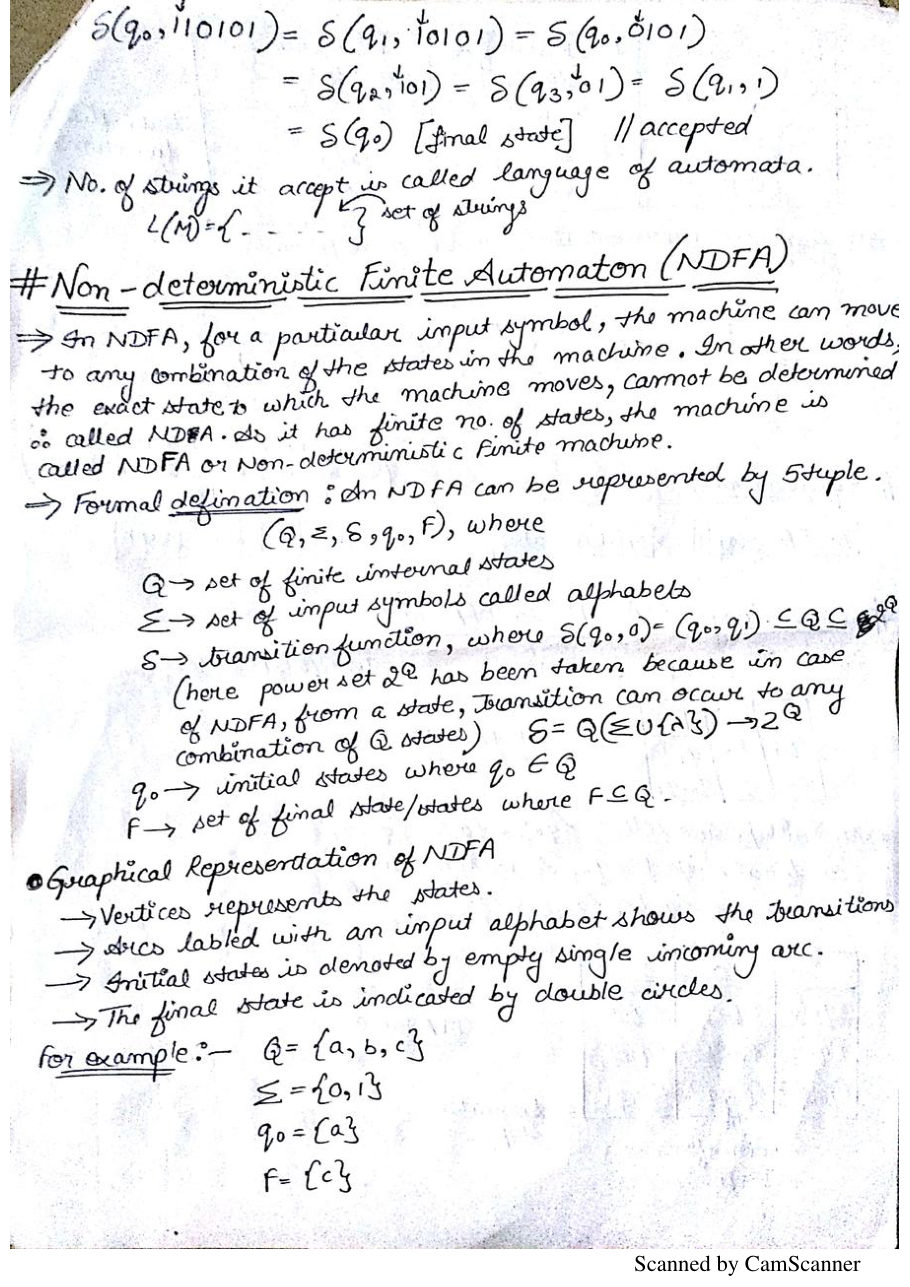 δ(q₀, 110101) = δ(q₁, 10101) = δ(q₀, 0101)
= δ(q₂, 101) = δ(q₃, 01) = δ(q₁, 1)
= δ(q₀) [final state] // accepted
⇒ No. of strings it accept is called language of automata.
L(M)={- - - - - } set of strings
# Non-deterministic Finite Automaton (NDFA)
⇒ In NDFA, for a particular input symbol, the machine can move
to any combination of the states in the machine. In other words,
the exact state to which the machine moves, cannot be determined
∴ called NDFA. As it has finite no. of states, the machine is
called NDFA or Non-deterministic Finite machine.
→ Formal defination : An NDFA can be represented by 5 tuple.
(Q, Σ, δ, q₀, F), where
Q → set of finite internal states
Σ → set of input symbols called alphabets
δ → transition function, where δ(q₀, 0) = (q₀, q₁) ⊆ Q ⊆ 2^Q
(here power set 2^Q has been taken because in case
of NDFA, from a state, Transition can occur to any
combination of Q states) δ = Q(Σ∪{λ}) → 2^Q
q₀ → initial states where q₀ ∈ Q
F → set of final state/states where F ⊆ Q.
• Graphical Representation of NDFA
→ Vertices represents the states.
→ Arcs labled with an input alphabet shows the transitions
→ Initial states is denoted by empty single incoming arc.
→ The final state is indicated by double circles.
For example :- Q = {a, b, c}
Σ = {0, 1}
q₀ = {a}
F = {c}
Scanned by CamScanner